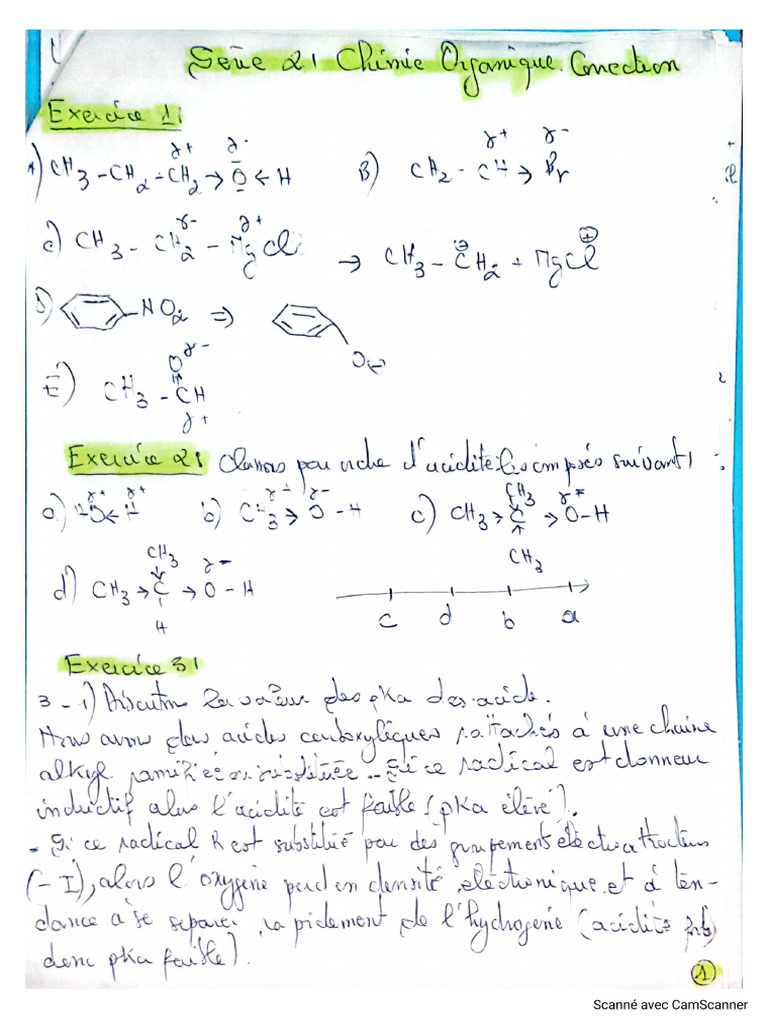 Série 2: Chimie Organique. Correction
Exercice 1:
A) CH3-CH2-CH2→O←H B) CH2-CH→Br
δ+ δ- δ+ δ-
c) CH3-CH2-MgCl → CH3-CH2 + MgCl
δ- δ+ ⊖ ⊕
D) NO2 ⇒ O(-)
E) CH3-CH
O δ-
δ+
Exercice 2: Classons par ordre d'acidité les composés suivant:
a) H→O←H b) CH3→O-H c) CH3→C→O-H
CH3
CH3
d) CH3→C→O-H
CH3
H
c d b a
Exercice 3:
3-1) Discution la valeur des pka des acide.
Nous avons des acides carboxyliques rattachés à une chaine
alkyl ramifiée ou substituée.. Si ce radical est donneur
inductif alors l'acidité est faible (pka élevé).
- Si ce radical R est substitué par des groupement electroattracteurs
(-I), alors l'oxygène perd en densité électronique et à ten-
dance à se separer rapidement de l'hydrogène (acidité
donc pka faible).
1
Scanné avec CamScanner